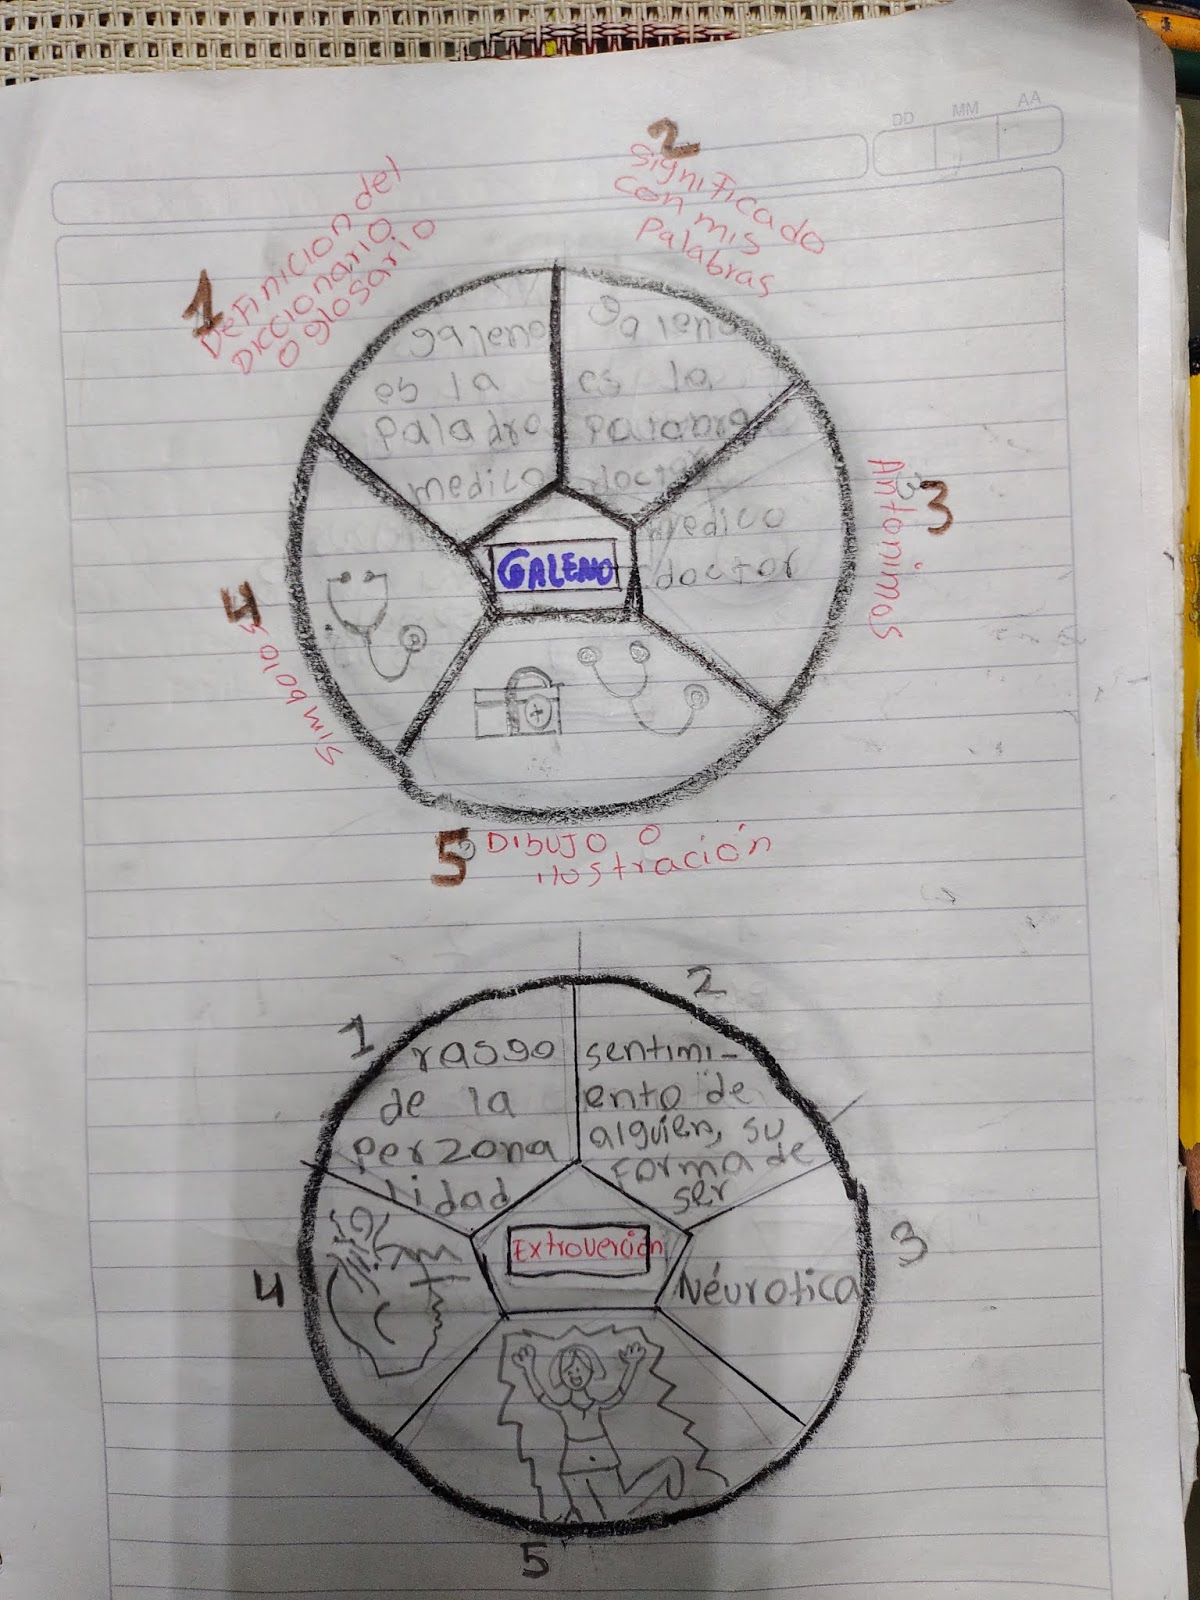 DD MM AA
1
Definicion del
Diccionario
o glosario
2
significado
con mis
Palabras
galeno
es la
paladro
medico
galeno
es la
palabra
doctor
3
Antonimos
medico
doctor
GALENO
4
simbolos
5
DIBUJO O
ilustración
1
rasgo
de la
perzona
lidad
2
sentimi-
ento de
alguien, su
forma de
ser
3
Néurotica
Extroverción
4
5